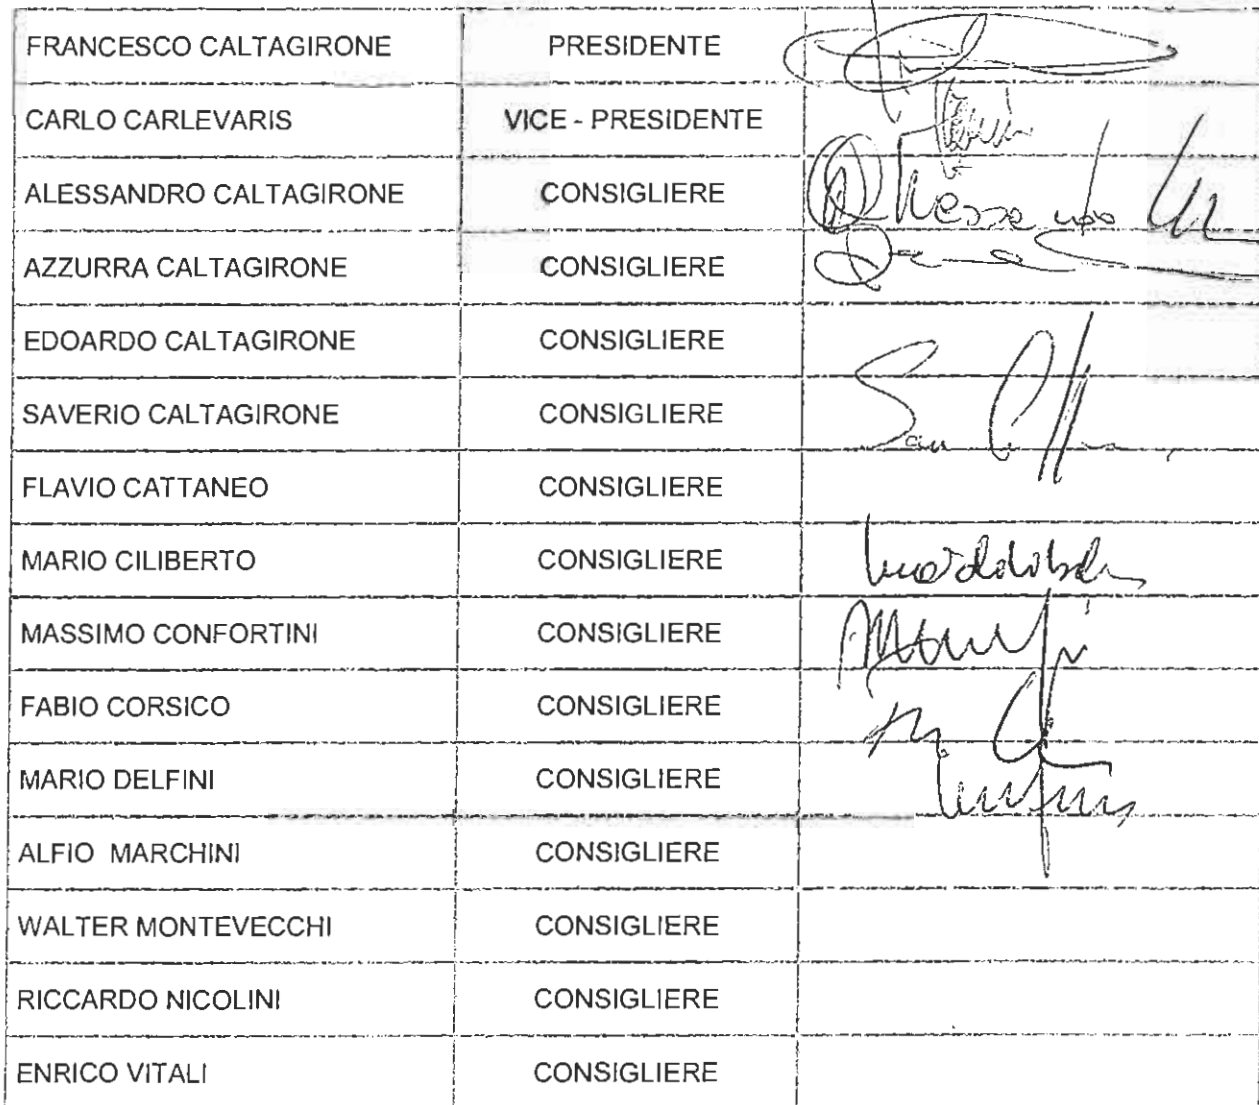 FRANCESCO CALTAGIRONE PRESIDENTE
CARLO CARLEVARIS VICE - PRESIDENTE
ALESSANDRO CALTAGIRONE CONSIGLIERE
AZZURRA CALTAGIRONE CONSIGLIERE
EDOARDO CALTAGIRONE CONSIGLIERE
SAVERIO CALTAGIRONE CONSIGLIERE
FLAVIO CATTANEO CONSIGLIERE
MARIO CILIBERTO CONSIGLIERE
MASSIMO CONFORTINI CONSIGLIERE
FABIO CORSICO CONSIGLIERE
MARIO DELFINI CONSIGLIERE
ALFIO MARCHINI CONSIGLIERE
WALTER MONTEVECCHI CONSIGLIERE
RICCARDO NICOLINI CONSIGLIERE
ENRICO VITALI CONSIGLIERE